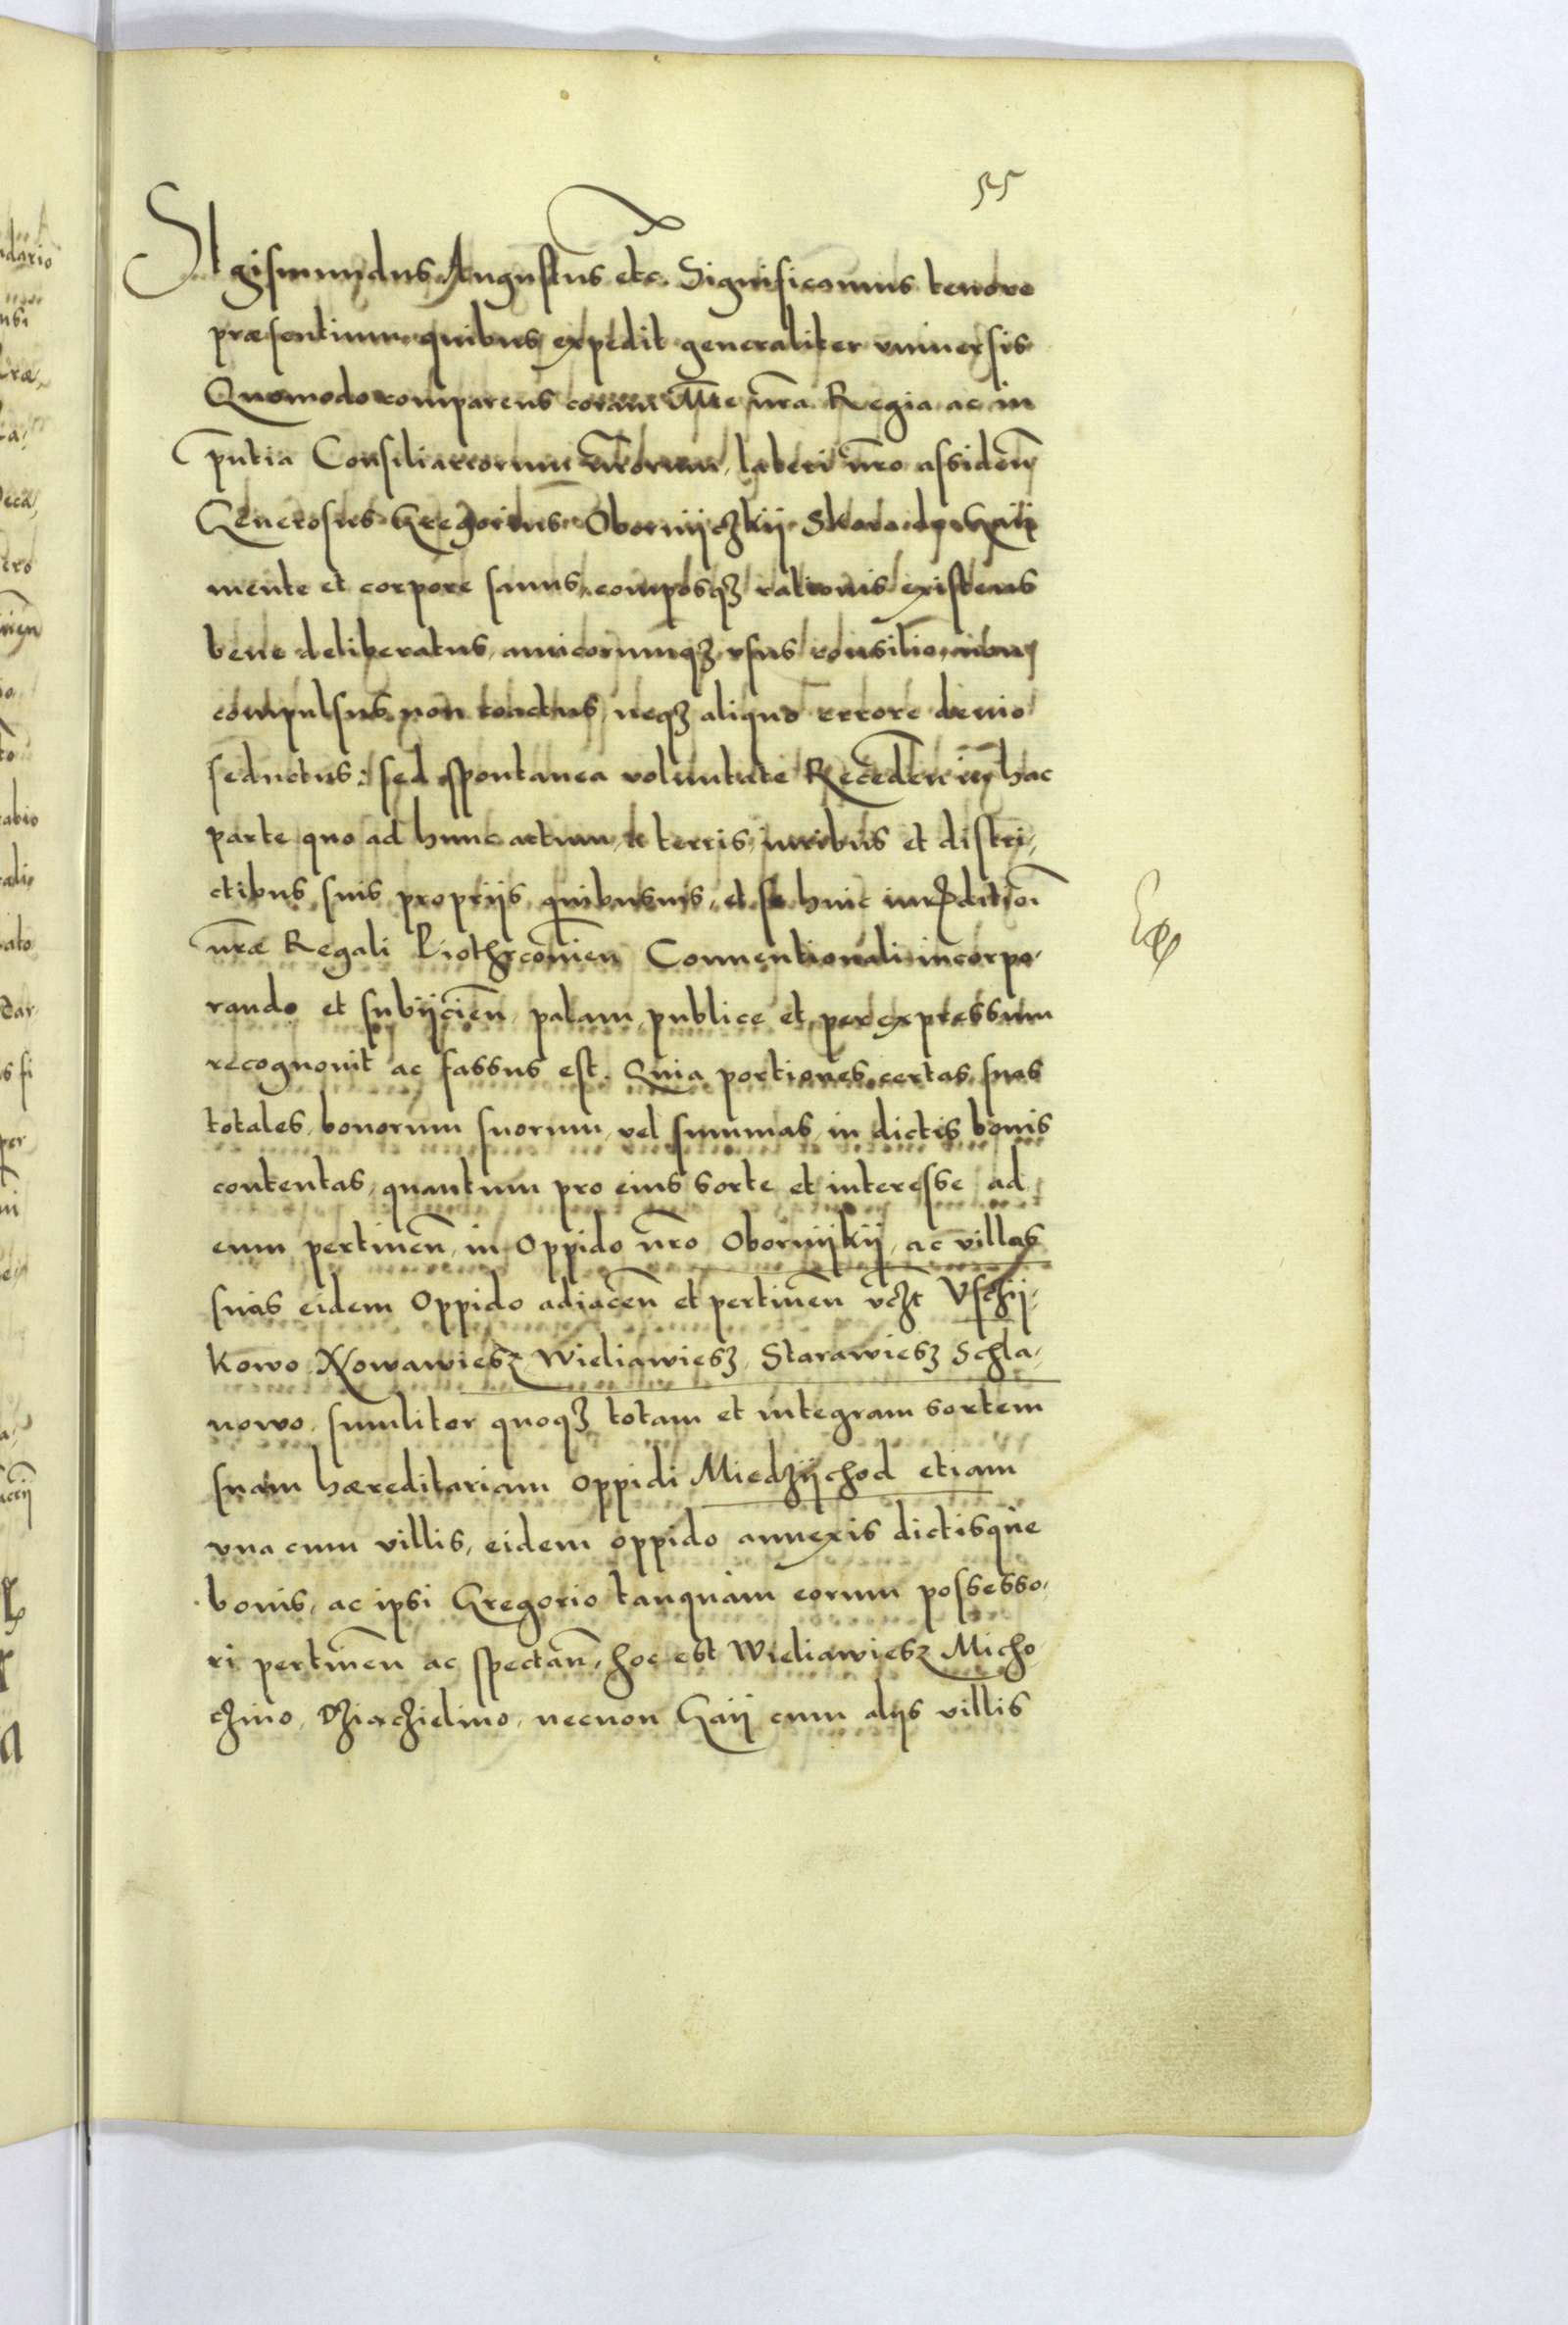 55
Sigismundus Augustus etc. Significamus tenore
præsentium quibus expedit generaliter vniuersis
Quomodo comparens coram Mte nra Regia ac in
pntia Consiliariorum nrorum, lateri nro assiden
Generosus Gregorius Obornijczkij Skora de Gaij
mente et corpore sanus, composqz rationis existens
bene deliberatus, amicorumqz vsus consilio,
compulsus non coactus, neqz aliquo errore deuio
seductus: sed spontanea voluntate Receden in hac
parte quo ad hunc actum, a terris, iuribus et distri,
ctibus suis proprijs quibusuis, et se huic iurisditioi
nræ Regali Piothrcouien Conuentionali incorpo,
rando et subijcien, palam, publice et per expressum
recognouit ac fassus est. Quia portiones certas suas
totales, bonorum suorum, vel summas, in dictis bonis
contentas, quantum pro eius sorte et interesse ad
eum pertinen, in Oppido nro Obornijkij, ac villas
suas eidem Oppido adiacen et pertinen vczt Vschij,
kowo Nowawiesz Wieliawiesz, Starawiesz Schla,
nowo, similiter quoqz totam et integram sortem
suam hæreditariam oppidi Miedzijchod etiam
vna cum villis, eidem oppido annexis dictisque
bonis, ac ipsi Gregorio tanquam eorum possesso,
ri pertinen ac spectan, hoc est Wieliawiesz Micho
czino, Dziaczielino, necnon Gaij cum alijs villis